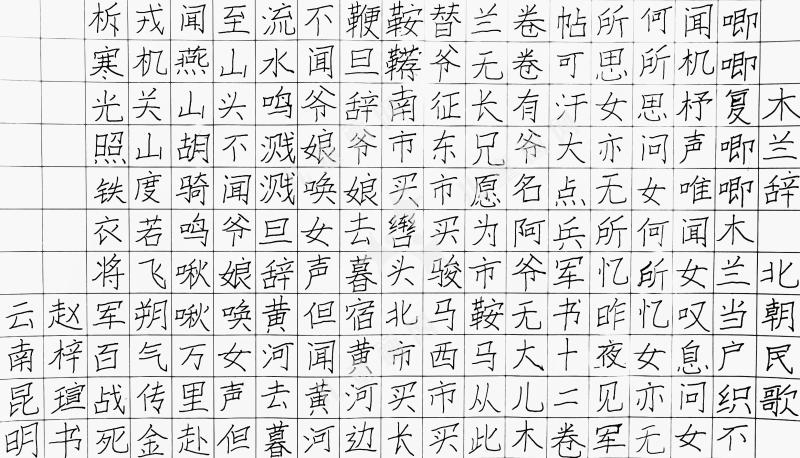 木兰辞 北朝民歌
唧唧复唧唧木兰当户织不
闻机杼声唯闻女叹息问女
何所思问女何所忆女亦无
所思女亦无所忆昨夜见军
帖可汗大点兵军书十二卷
卷卷有爷名阿爷无大儿木
兰无长兄愿为市鞍马从此
替爷征东市买骏马西市买
鞍鞯南市买辔头北市买长
鞭旦辞爷娘去暮宿黄河边
不闻爷娘唤女声但闻黄河
流水鸣溅溅旦辞黄河去暮
至山头不闻爷娘唤女声但
闻燕山胡骑鸣啾啾万里赴
戎机关山度若飞朔气传金
柝寒光照铁衣将军百战死
赵梓瑄书
云南昆明